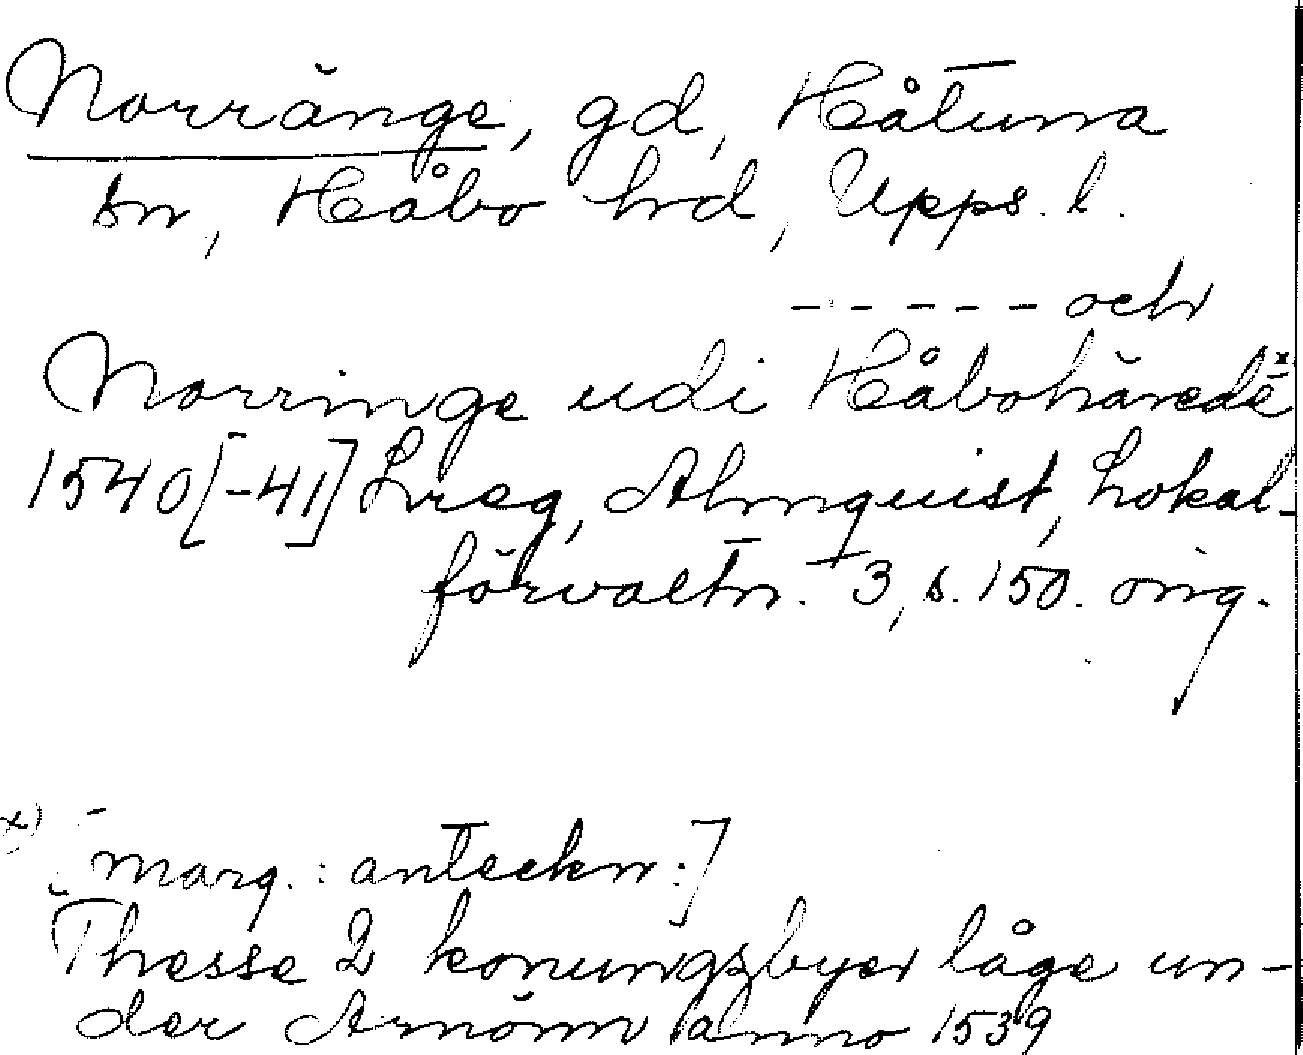 Norränge, gd, Håtuna
sn, Håbo hrd, Upps. l.
- - - - - och
Norringe udi Håbohärede x
1540[-41] Lreg, Almquist, Lokal-
förvaltn. 3, s. 150. orig.
x) [marg.: anteckn:]
Thesse 2 konungsbyer låge un-
der Arnöön anno 1539